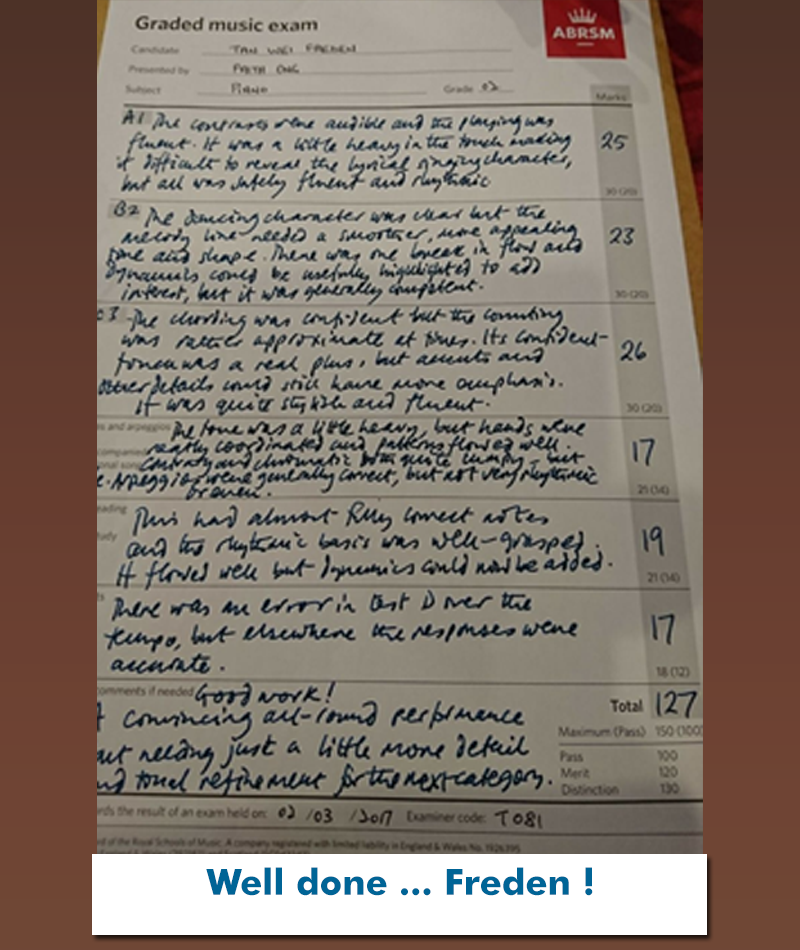 Graded music exam
ABRSM
Candidate TAN WEI FREDEN
Presented by FAITH ONG
Subject PIANO Grade 02
Marks
A1 The contrasts were audible and the playing was
fluent. It was a little heavy in the touch making
it difficult to reveal the lyrical singing character,
but all was safely fluent and rhythmic
25
30 (20)
B2 The dancing character was clear but the
melody line needed a smoother, more appealing
tone and shape. There was one break in flow and
dynamics could be usefully highlighted to add
interest, but it was generally competent.
23
30 (20)
3 The chording was confident but the counting
was rather approximate at times. Its confident-
was a real plus, but accents and
other details could still have more emphasis.
It was quite stylish and fluent.
26
30 (20)
s and arpeggios The tone was a little heavy, but hands were
neatly coordinated and patterns flowed well.
Contrary and chromatic both quite but
Arpeggios were generally correct, but not very rhythmic
or even.
17
21 (14)
eading
This had almost fully correct notes
and the rhythmic basis was well-grasped.
It flowed well but dynamics could now be added.
19
21 (14)
There was an error in test D over the
tempo, but elsewhere the responses were
accurate.
17
18 (12)
comments if needed Good work!
convincing all-round performance
but needing just a little more detail
and tonal refinement for the next category.
Total 127
Maximum (Pass) 150 (100)
Pass 100
Merit 120
Distinction 130
rds the result of an exam held on: 02 /03 /2017 Examiner code: T081
rd of the Royal Schools of Music. A company registered with limited liability in England & Wales No. 1926395
Well done ... Freden !